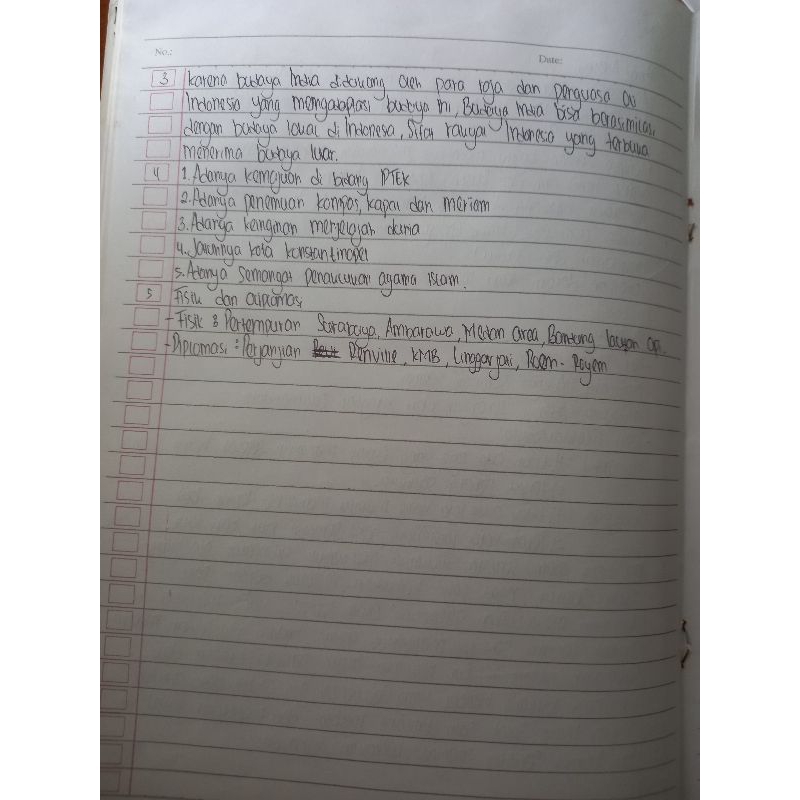 No.: Date:
3 karena budaya India didukung oleh para raja dan penguasa di
Indonesia yang mengadaptasi budaya ini, Budaya India bisa berasimilasi
dengan budaya lokal di Indonesia, Sifat rakyat Indonesia yang terbuka
menerima budaya luar.
4 1. Adanya kemajuan di bidang IPTEK
2. Adanya penemuan kompas, kapal dan meriam
3. Adanya keinginan menjelajah dunia
4. Jatuhnya kota konstantinopel
5. Adanya semangat penaklukan agama islam.
5 Fisik dan diplomasi
- Fisik : Pertempuran Surabaya, Ambarawa, Medan area, Bandung lautan api.
- Diplomasi : Perjanjian Renville, KMB, Linggarjati, Roem - Royem